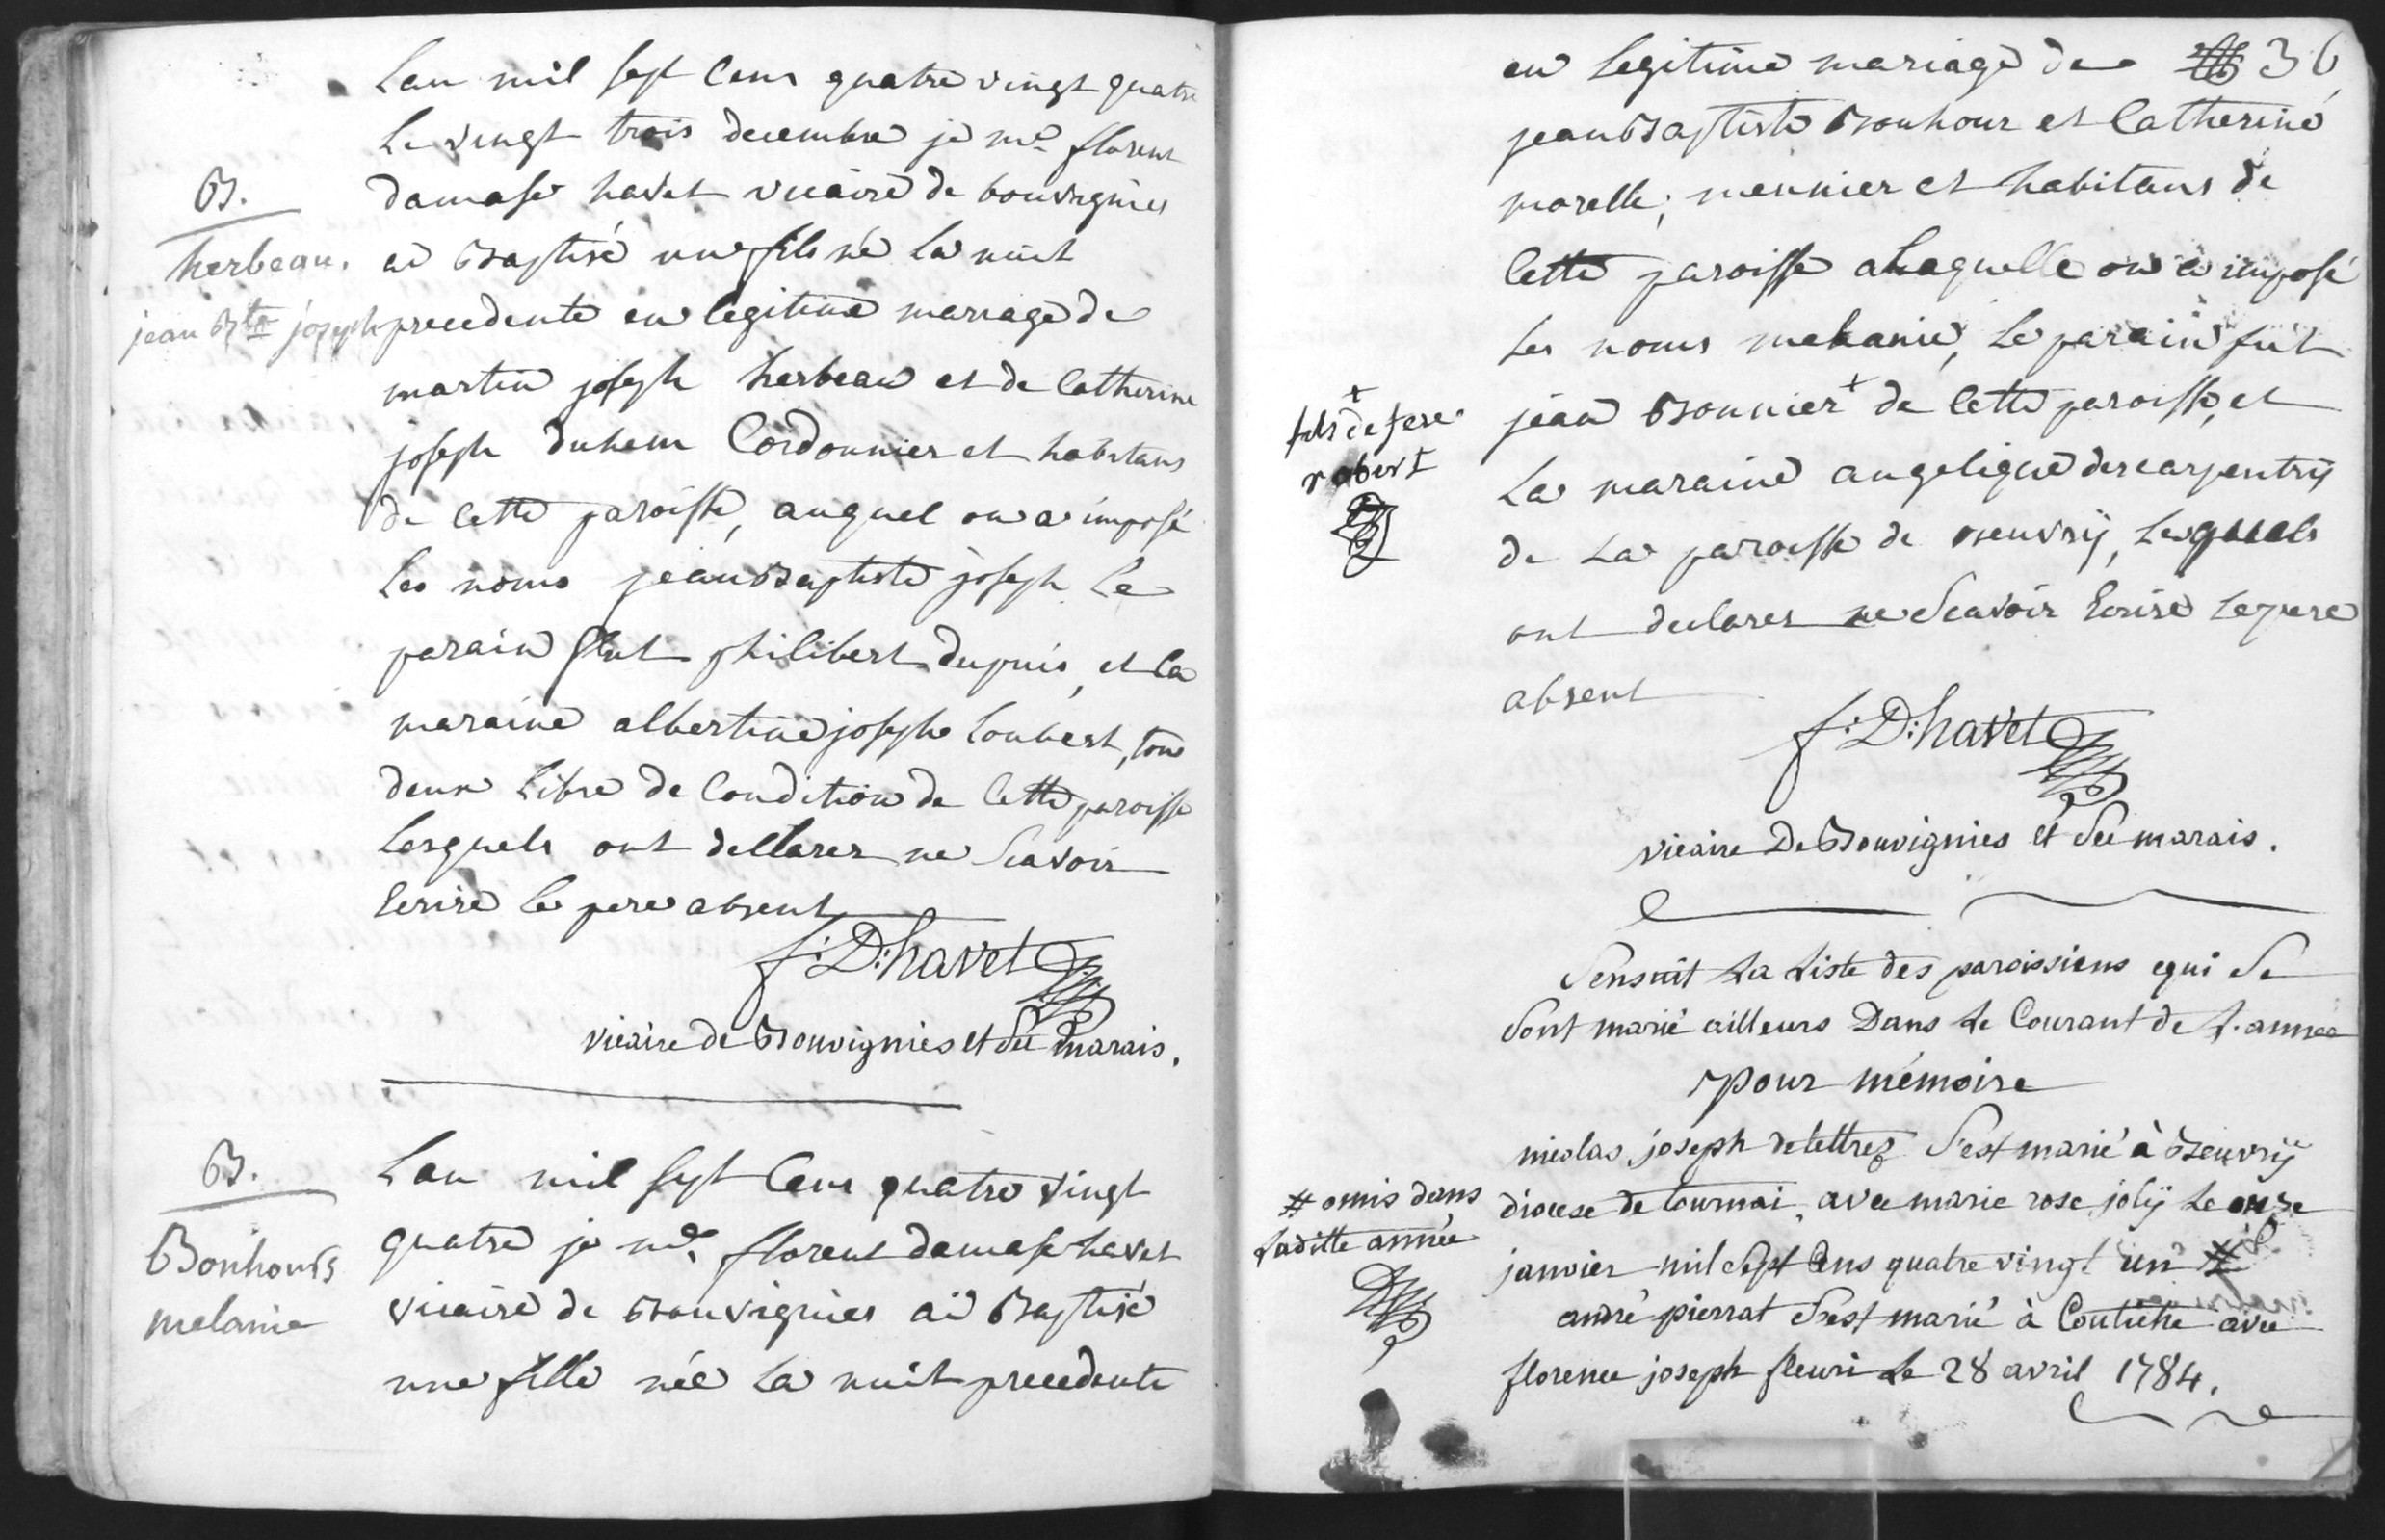 Lan mil sept Cens quatre vingt quatre
Le vingt trois decembre je mᵉ florent
damase havet vicaire de bouvignies
ai Baptisé un fils né la nuit
precedente en legitime mariage de
martin joseph herbeau et de Catherine
joseph duhem Cordonnier et habitans
de cette paroisse, auquel on a imposé
les noms jean Baptiste joseph le
parain fut philibert dupuis, et la
maraine albertine josephe Loubert, tou
deux libre de Condition de cette paroisse
lesquels ont dellarer ne Scavoir
Ecrire le pere absent
f: D: havet
vicaire de Bouvignies et du marais.
B.
herbeau.
jean Bᵗᵉ joseph
B.
Bonhours
melanie
Lan mil sept Cens quatre vingt
quatre je mᵉ florent damase havet
vicaire de Bouvignies ai Baptisé
une fille née la nuit precedente
en legitime mariage de 36
jean Baptiste Bonhour et Catherine
morelle; meunier et habitans de
cette paroisse a Laquelle on a imposé
les noms melanie, le parain fut
jean Bonnier + de cette paroisse, et
La maraine angelique descarpentrij
de La paroisse de Beuvrij, lesquels
ont declarer ne Scavoir Ecrire le pere
absent
+
fils de fere
robert
f: D: havet
vicaire De Bouvignies et du marais.
Sensuit La Liste des paroissiens qui Se
Sont marié ailleurs Dans le Courant de l'année
pour mémoire
nicolas joseph delettrez S'est marié à Beuvrij
diocese de tournai, avec marie rose jolij le onze
janvier mil Sept Cens quatre vingt un #
andré pierrat S'est marié à Coutiche avec
florence joseph fleuri le 28 avril 1784.
# omis dans
Laditte année